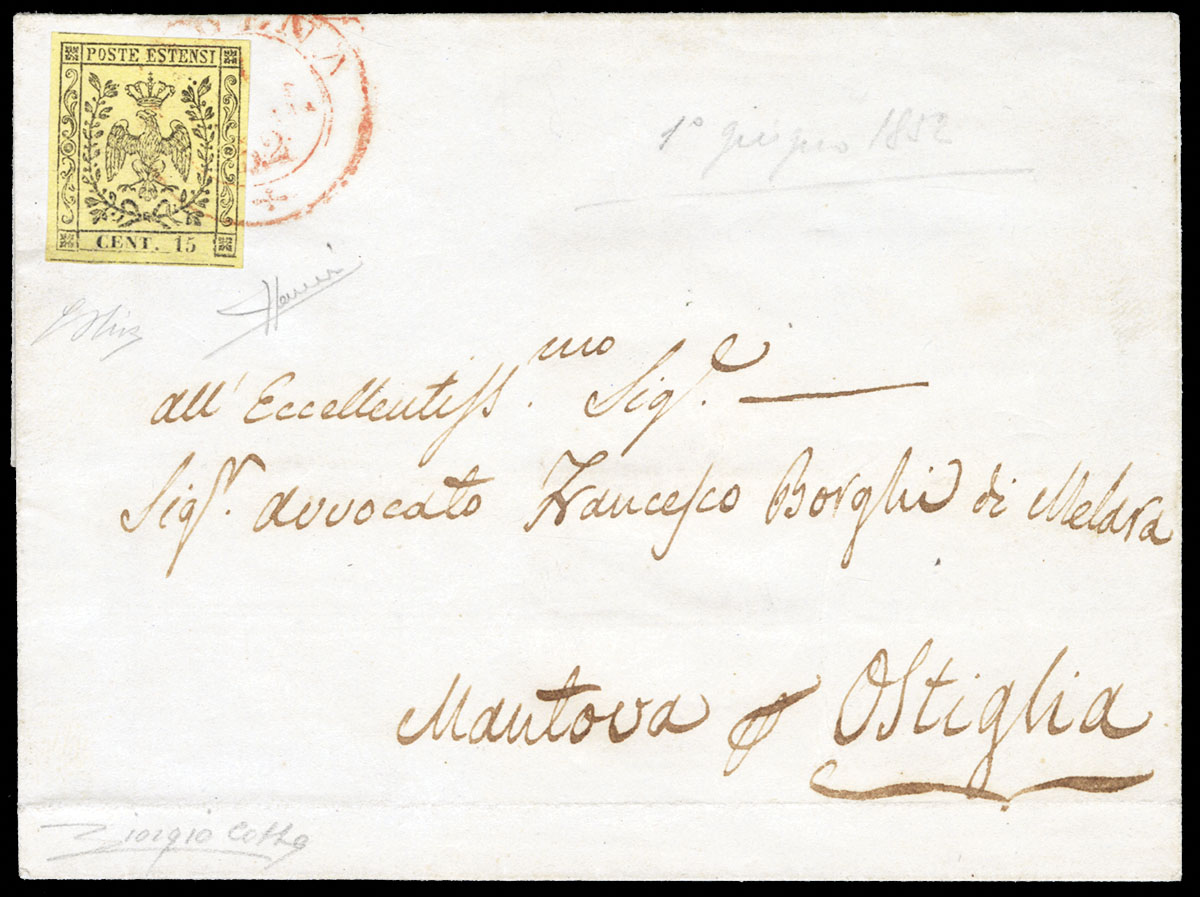 POSTE ESTENSI
CENT. 15
52
1° giugno 1852
all' Eccellentiss.mo Sig.e
Sig.r avvocato Francesco Borghi di Melara
Mantova p Ostiglia
Giorgio Colla